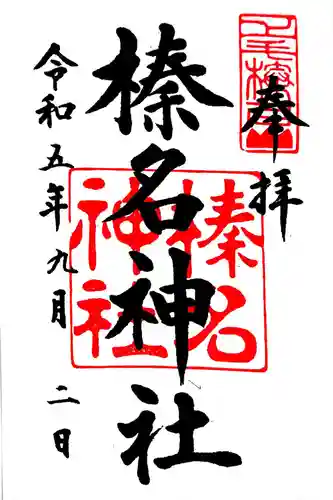 奉拝
榛名神社
令和五年九月二日
榛名
神社